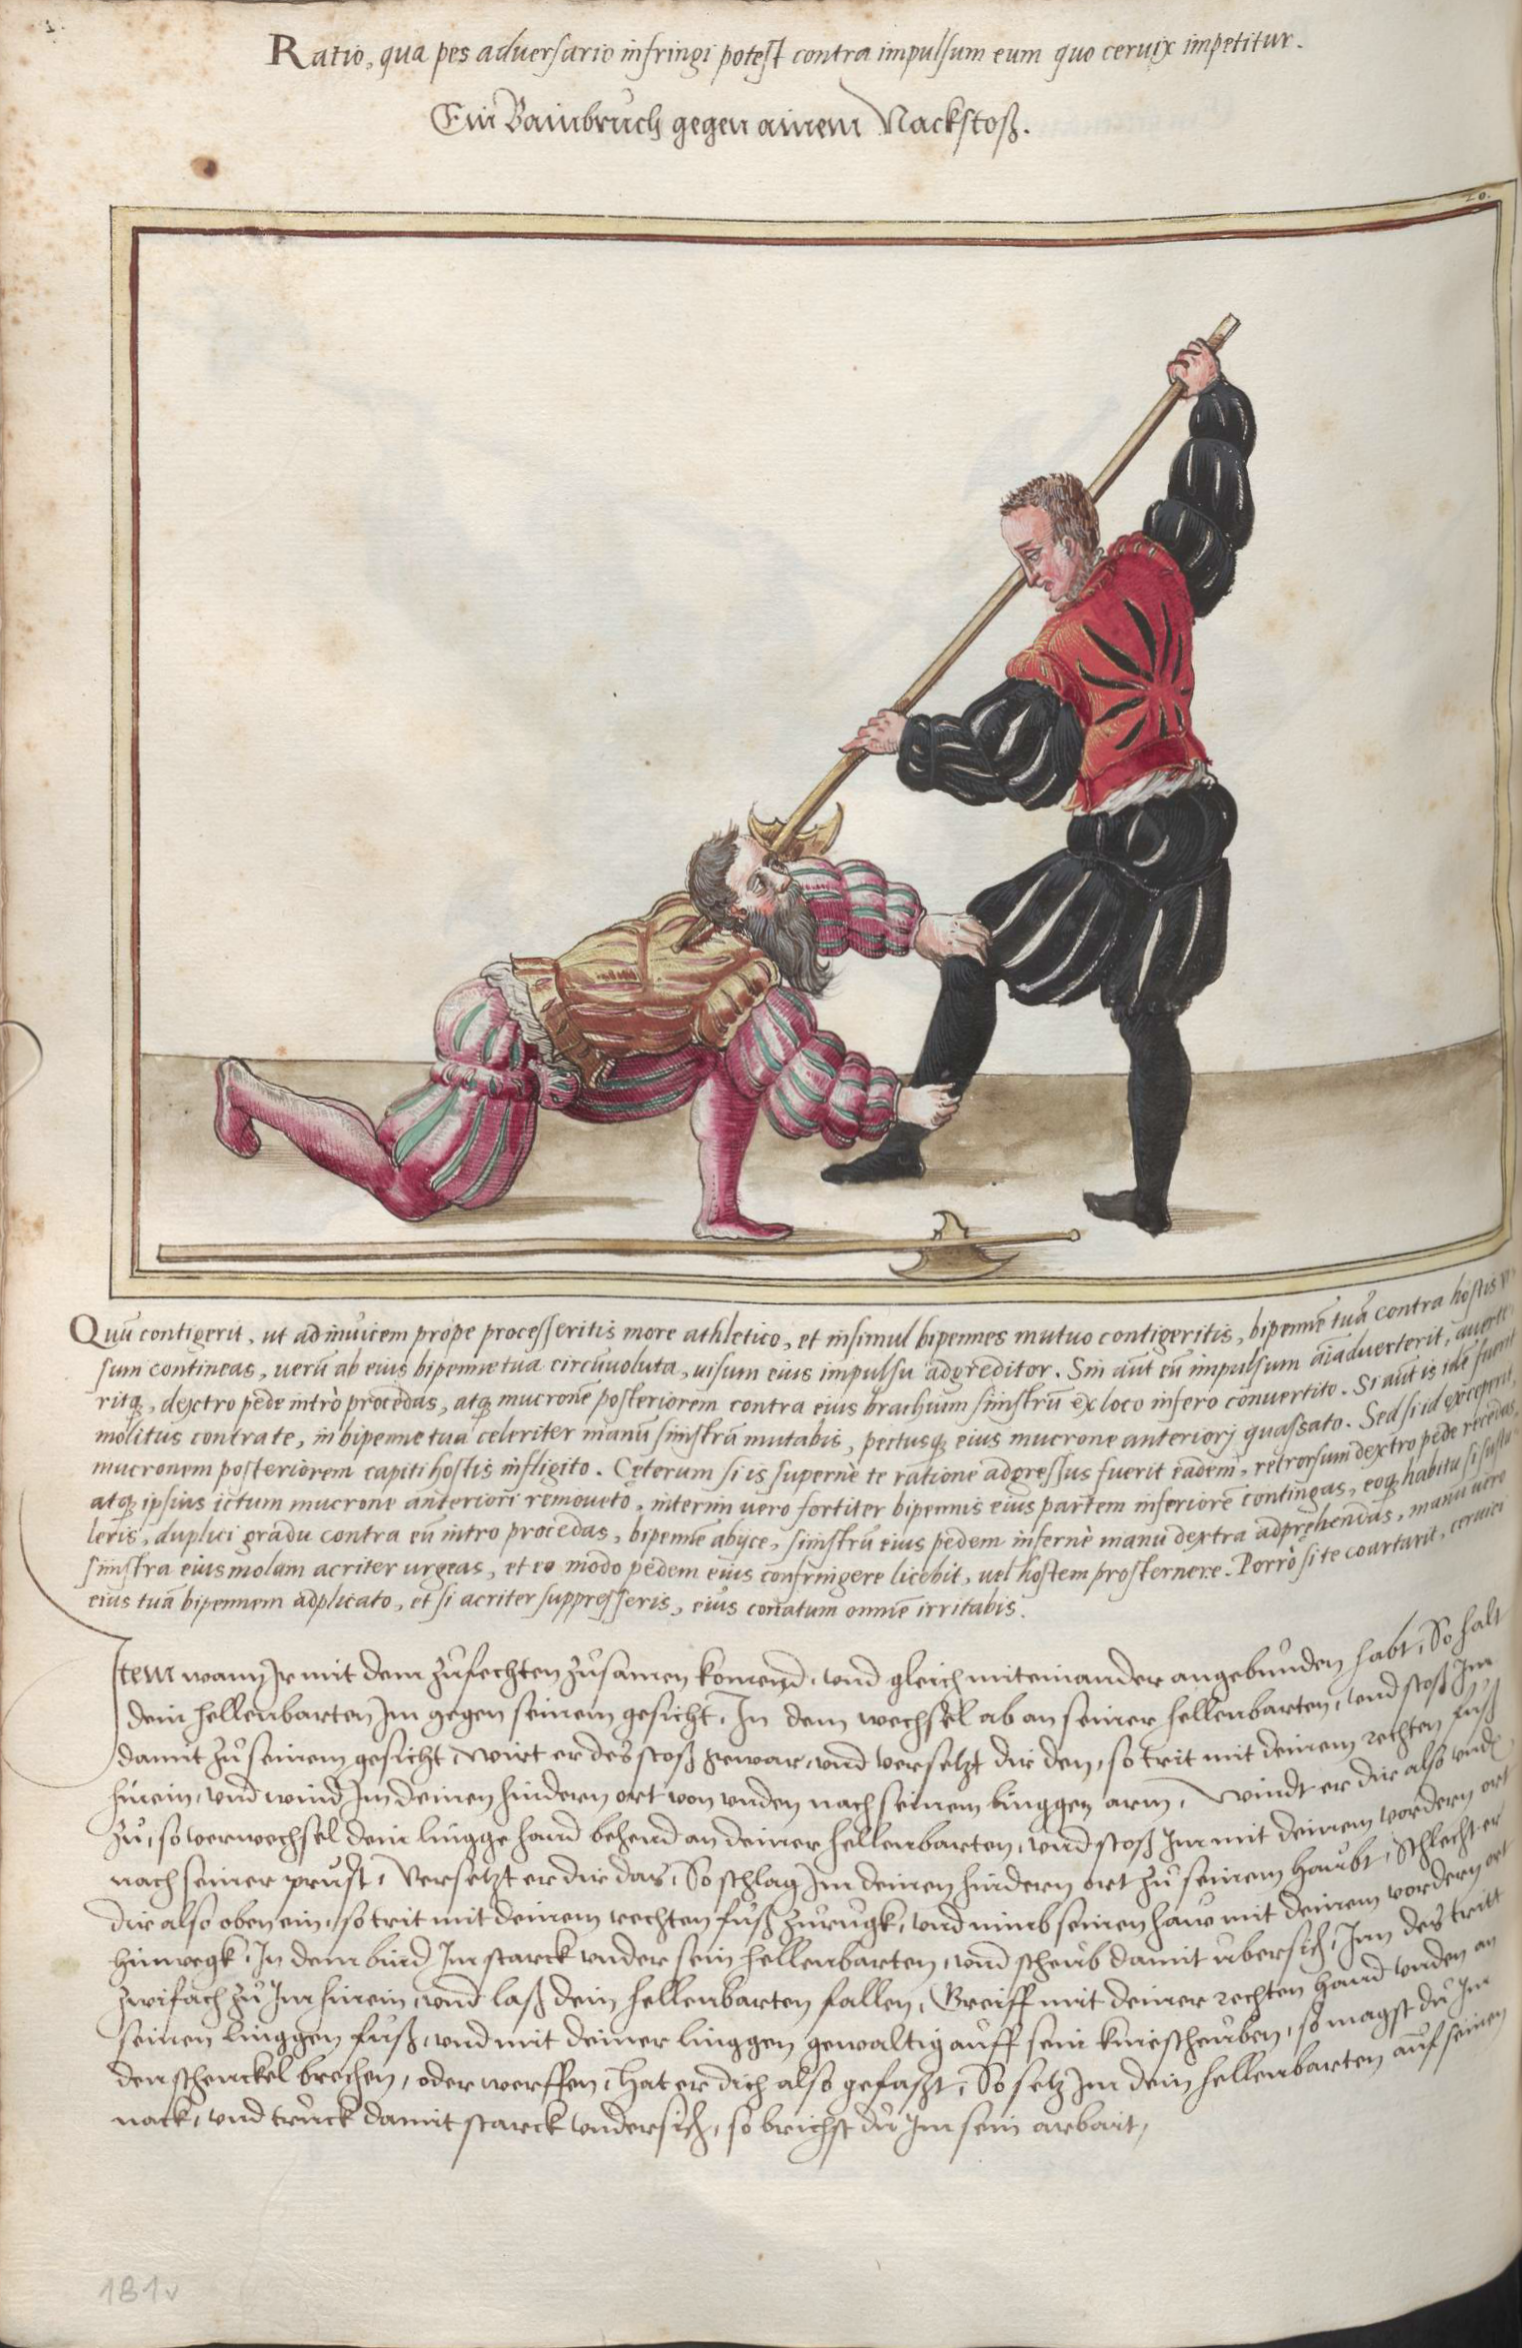 1.
Ratio, qua pes adversario infringi potest contra impulsum eum quo cervix impetitur.
Ein Bainbruch gegen ainem Nackstoß.
20.
Quũ contigerit, ut ad invicem prope processeritis more athletico, et insimul bipennes mutuo contigeritis, bipennẽ tuã contra hostis
sum contineas, verũ ab eius bipenne tua circũvoluta, visum eius impulsu adgreditor. Sin aut eũ impulsum aĩadverterit, averte
ritq, dextro pede intrò procedas, atq mucronẽ posteriorem contra eius brachium sinistrũ ex loco infero convertito. Si aut is idẽ fuerit
molitus contra te, in bipenne tua celeriter manũ sinistrã mutabis, pectusq eius mucrone anteriorj quassato. Sed si id exceperit,
mucronem posteriorem capiti hostis infligito. Ceterum si is supernè te ratione adgressus fuerit eadem, retrorsum dextro pede recedas,
atq ipsius ictum mucrone anteriori removeto, interim vero fortiter bipennis eius partem inferiorẽ contingas, eoq habitu si sustu
leris, duplici gradu contra eũ intro procedas, bipennẽ abijce, sinistrũ eius pedem infernè manu dextra adprehendas, manu vero
sinistra eius molam acriter urgeas, et eo modo pedem eius confringere licebit, vel hostem prosternere. Porrò si te coarctarit, cervici
eius tuã bipennem adplicato, et si acriter suppresseris, eius conatum omnẽ irritabis.
Item wann Ir mit dem zůfechten zůsamen komend, und gleich mit einander angebunden habt, So halt
dein hellenbarten Im gegen seinem gesicht, In dem wechsel ab an seiner hellenbarten, und stoß Im
damit zů seinem gesicht, wirt er des stoß gewar, und versetzt dir den, so trit mit deinem rechten fůß
hinein, und wind Im deinen hindern ort von unden nach seinem linggen arm, windt er dir also und
zů, so verwechsel dein lingge hand behend an deiner hellenbarten, und stoß Im mit deinem vordern ort
nach seiner prust, Versetzt er dir das, So schlag Im deinen hindern ort zů seinem haubt, Schlecht er
dir also oben ein, so trit mit deinem rechten fůß zůrugk, und nimb seinen haw mit deinem vordern ort
hinwegk, In dem bind Im starck under sein hellenbarten, und scheub damit ubersich, Inn des tritt
zwifach zů Im hinein, und laß dein hellenbarten fallen, Greiff mit deiner rechten hand unden an
seinen linggen fůß, und mit deiner linggen gewaltig auff sein knieschenben, so magst du Im
den schenckel brechen, oder werffen, Hat er dich also gefaßt, So setz Im dein hellenbarten auf seinen
nack, und truck damit starck undersich, so brichst du Im sein arbait,
181v